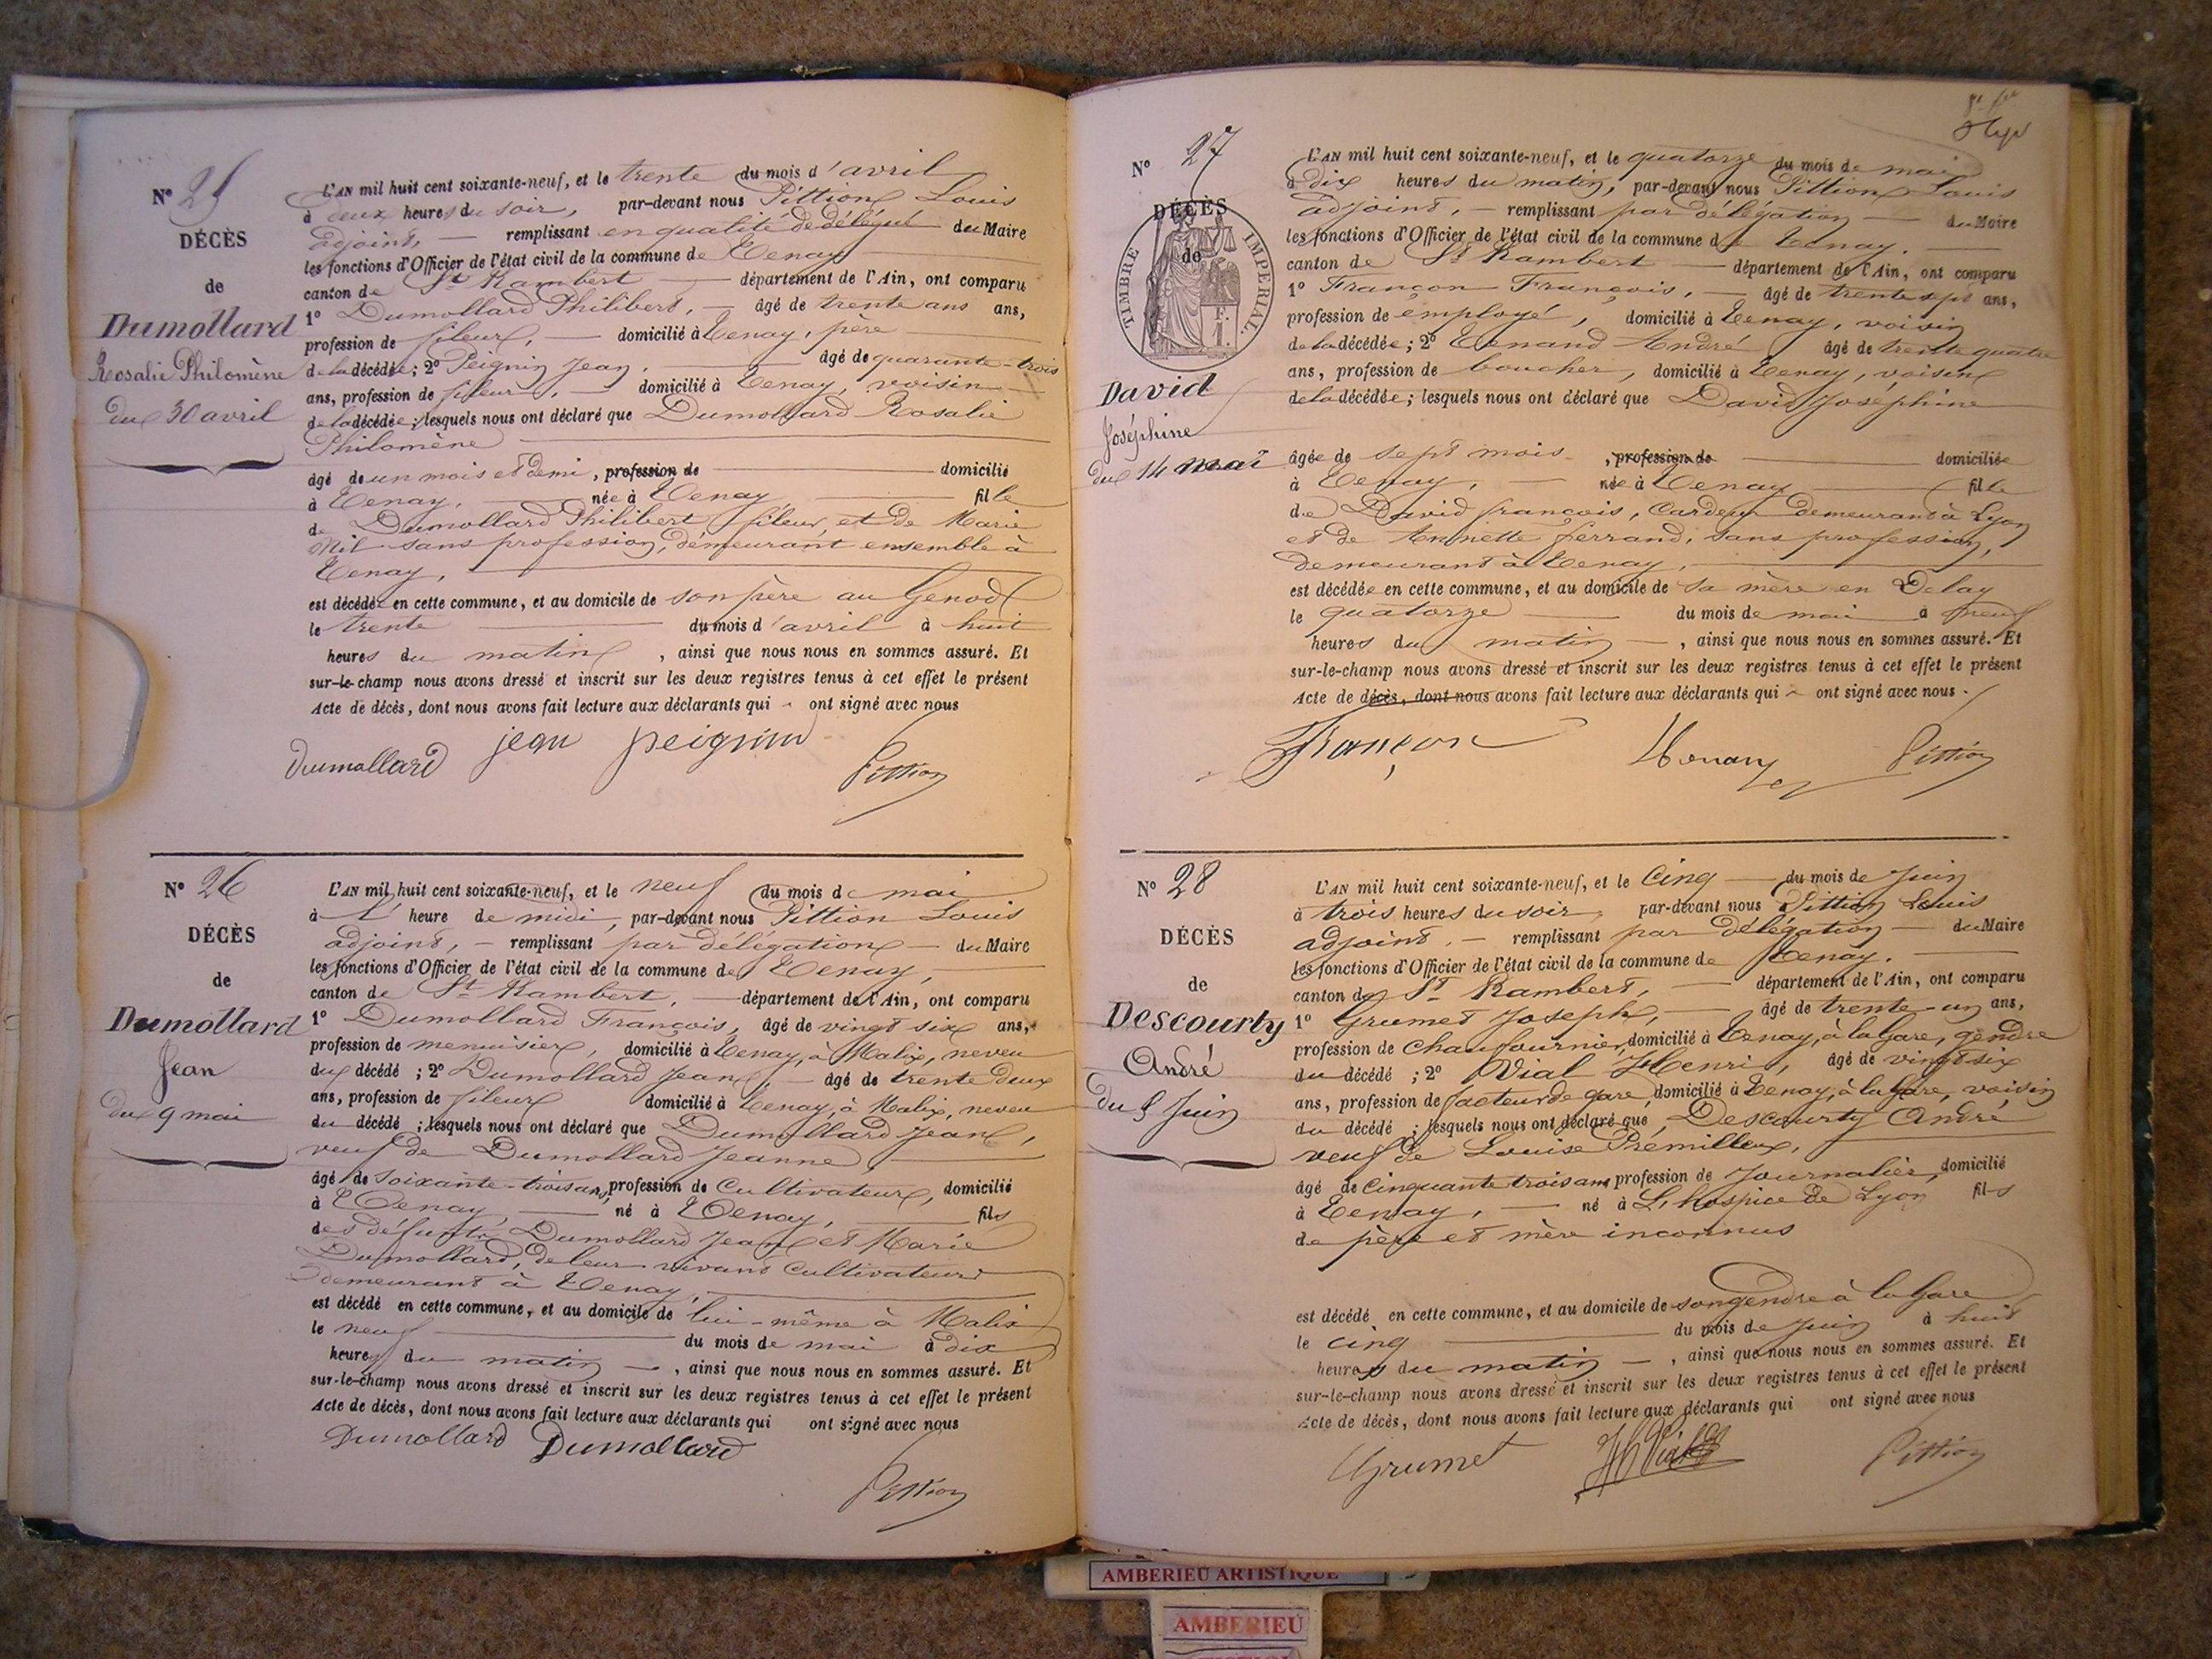 N° 25
DÉCÈS
de
Dumollard
Rosalie Philomène
du 30 avril
L'AN mil huit cent soixante-neuf, et le trente du mois d'avril
à deux heures du soir, par-devant nous Pittion Louis
adjoint, — remplissant en qualité de délégué du Maire
les fonctions d'Officier de l'état civil de la commune de Tenay
canton de St Rambert — département de l'Ain, ont comparu
1° Dumollard Philibert, — âgé de trente ans ans,
profession de fileur, — domicilié à Tenay, père
de la décédée; 2° Peignin Jean, — âgé de quarante-trois
ans, profession de fileur, — domicilié à Tenay, voisin
de la décédée; lesquels nous ont déclaré que Dumollard Rosalie
Philomène
âgé de un mois et demi, profession de — domicilié
à Tenay, — née à Tenay — fille
de Dumollard Philibert fileur, et de Marie
Mit sans profession, demeurant ensemble à
Tenay,
est décédée en cette commune, et au domicile de son père au Genod
le trente — du mois d'avril à huit
heures du matin, ainsi que nous nous en sommes assuré. Et
sur-le-champ nous avons dressé et inscrit sur les deux registres tenus à cet effet le présent
Acte de décès, dont nous avons fait lecture aux déclarants qui - ont signé avec nous
Dumollard jean peignin
Pittion
N° 26
DÉCÈS
de
Dumollard
Jean
du 9 mai
L'AN mil huit cent soixante-neuf, et le neuf du mois de mai
à l' heure de midi, par-devant nous Pittion Louis
adjoint, — remplissant par délégation — du Maire
les fonctions d'Officier de l'état civil de la commune de Tenay,
canton de St Rambert, — département de l'Ain, ont comparu
1° Dumollard François, âgé de vingt six ans,
profession de menuisier, domicilié à Tenay, à Malix, neveu
du décédé; 2° Dumollard Jean, — âgé de trente deux
ans, profession de fileur domicilié à Tenay, à Malix, neveu
du décédé; lesquels nous ont déclaré que Dumollard Jean,
veuf de Dumollard Jeanne
âgé de soixante-trois ans, profession de Cultivateur, domicilié
à Tenay, — né à Tenay, — fils
des défunts Dumollard Jean et Marie
Dumollard, de leur vivant Cultivateurs
demeurant à Tenay,
est décédé en cette commune, et au domicile de lui-même à Malix
le neuf — du mois de mai à dix
heures du matin —, ainsi que nous nous en sommes assuré. Et
sur-le-champ nous avons dressé et inscrit sur les deux registres tenus à cet effet le présent
Acte de décès, dont nous avons fait lecture aux déclarants qui ont signé avec nous
Dumollard Dumollard
Pittion
N° 27
DÉCÈS
de
TIMBRE IMPERIAL.
David
Joséphine
du 14 mai
L'AN mil huit cent soixante-neuf, et le quatorze du mois de mai
à dix heures du matin, par-devant nous Pittion Louis
adjoint, — remplissant par délégation — du Maire
les fonctions d'Officier de l'état civil de la commune de Tenay.
canton de St Rambert — département de l'Ain, ont comparu
1° Françon François, — âgé de trente sept ans,
profession de employé, domicilié à Tenay, voisin
de la décédée; 2° Tenand André âgé de trente quatre
ans, profession de boucher, domicilié à Tenay, voisin
de la décédée; lesquels nous ont déclaré que David Joséphine
âgée de sept mois, profession de — domiciliée
à Tenay, — née à Tenay — fille
de David françois, Cardeur demeurant à Lyon
et de Annette ferrand, sans profession,
demeurant à Tenay,
est décédée en cette commune, et au domicile de sa mère en Delay
le quatorze — du mois de mai à neuf
heures du matin —, ainsi que nous nous en sommes assuré. Et
sur-le-champ nous avons dressé et inscrit sur les deux registres tenus à cet effet le présent
Acte de décès, dont nous avons fait lecture aux déclarants qui - ont signé avec nous.
Françon Pittion
N° 28
DÉCÈS
de
Descourty
André
du 5 Juin
L'AN mil huit cent soixante-neuf, et le cinq — du mois de Juin
à trois heures du soir, par-devant nous Pittion Louis
adjoint. — remplissant par délégation — du Maire
les fonctions d'Officier de l'état civil de la commune de Tenay.
canton de St Rambert, — département de l'Ain, ont comparu
1° Grumet Joseph, — âgé de trente-un ans,
profession de Chaufournier, domicilié à Tenay, à la Gare, gendre
du décédé; 2° Vial Henri, âgé de vingt six
ans, profession de facteur de gare, domicilié à Tenay, à la Gare, voisin
du décédé; lesquels nous ont déclaré que Descourty André
veuf de Louise Prémillieux,
âgé de cinquante trois ans profession de Journalier, domicilié
à Tenay, — né à L'hospice de Lyon fils
de père et mère inconnus
est décédé en cette commune, et au domicile de son gendre à la Gare
le cinq — du mois de Juin à huit
heures du matin —, ainsi que nous nous en sommes assuré. Et
sur-le-champ nous avons dressé et inscrit sur les deux registres tenus à cet effet le présent
Acte de décès, dont nous avons fait lecture aux déclarants qui ont signé avec nous
Grumet H Vial Pittion
AMBERIEU ARTISTIQUE
AMBERIEU